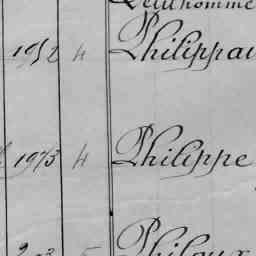 Petithomme
1952 4 Philippau
1973 4 Philippe
Philoux